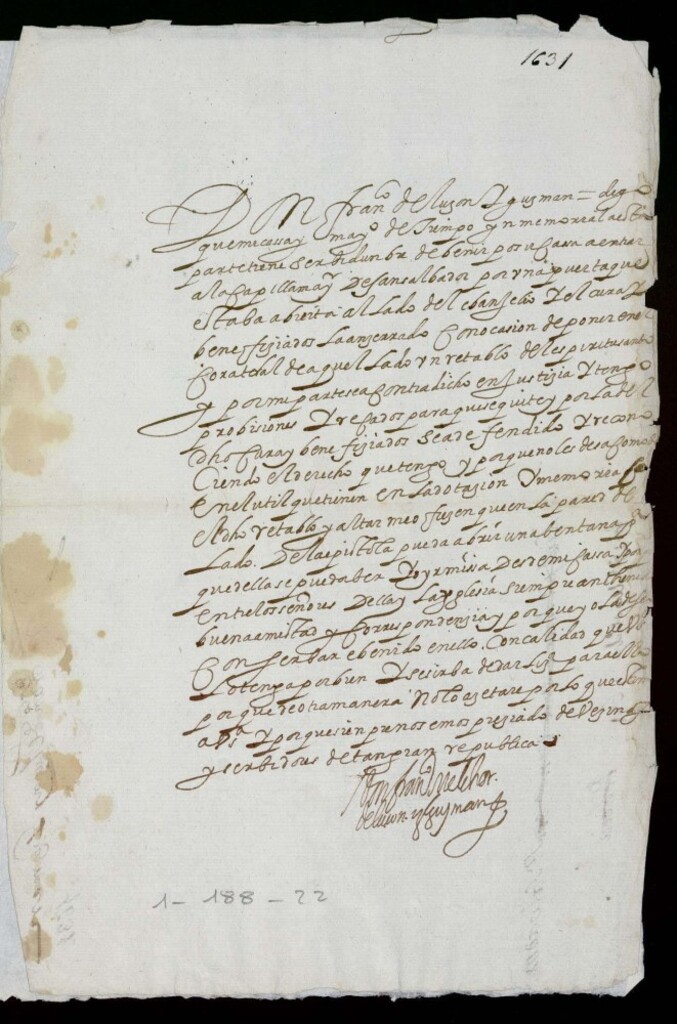 1631
Don Franco de luson y guzman = digo
que mi cassa y mayo de tiempo ynmemorial a esta
parte tiene serbidunbre de benir por su casa a entrar
a la capilla mayr de San salbador por una puerta que
estaba abierta al lado del ebanjelio y el cura y
benefiçiados la an zerrado con ocasion de poner en el
colateral de aquel lado un retablo del espiritu santo
y por mi parte se a contradicho en justizia y tengo
probisiones y recados para que se quite y por la del
dho cura y benefiçiados se a defendido y recono
ciendo el derecho que tengo y porque no les desacomode
en el util que tienen en la dotazion y memoria
el dho retablo y altar me ofrezen que en la pared del
lado de la epistola pueda abrir una bentana pa
que della se pueda ber y oyr missa desde mi cassa y an
entre los señores della y la yglesia siempre an tenido
buena amistad y correspondenzia y porque yo la deseo
conserbar e benido en ello con calidad que V.
lo tenga por bien y se sirba de dar liza para ello
porque de otra manera no lo azetare por lo que estimo
a Vsa y porque sienpre nos emos preziado de vezinos
y serbidores de tan gran republica
Don franco melchor
de luson y guzman
1 - 188 - 22